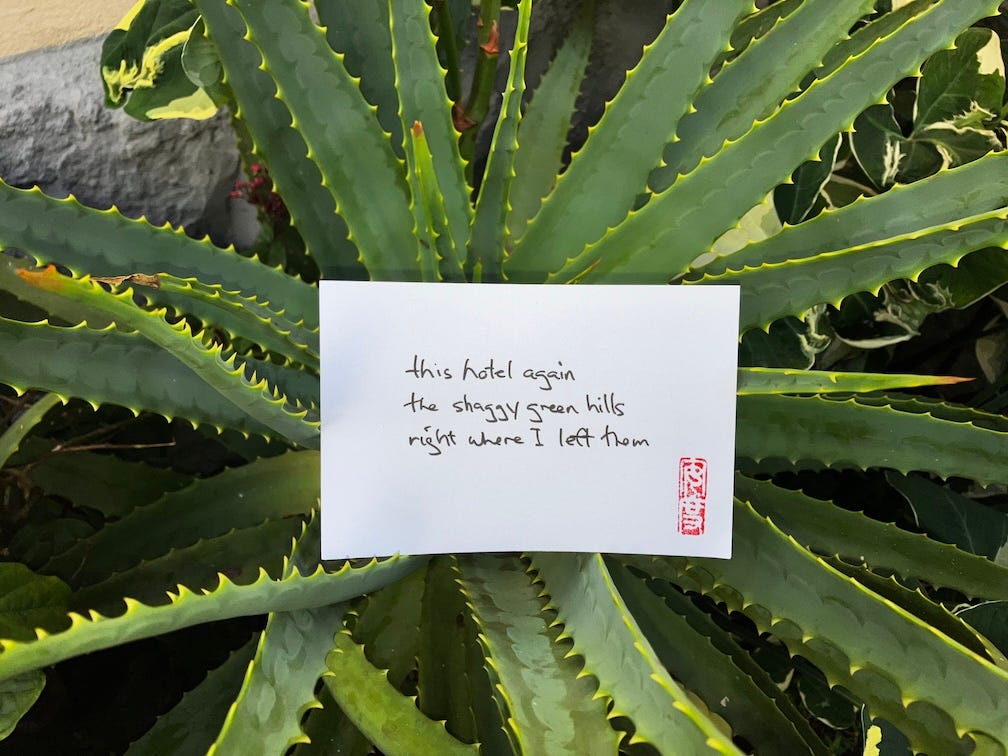 this hotel again
the shaggy green hills
right where I left them